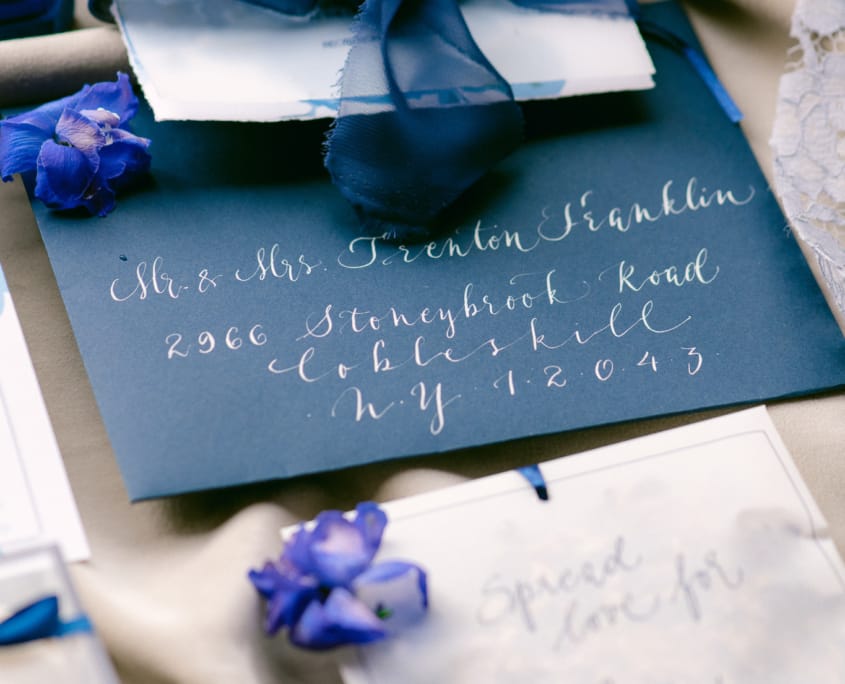 Mr. & Mrs. Trenton Franklin
2966 Stoneybrook Road
Cobleskill
· N·Y· 1·2·0·4·3·
Spread
love for